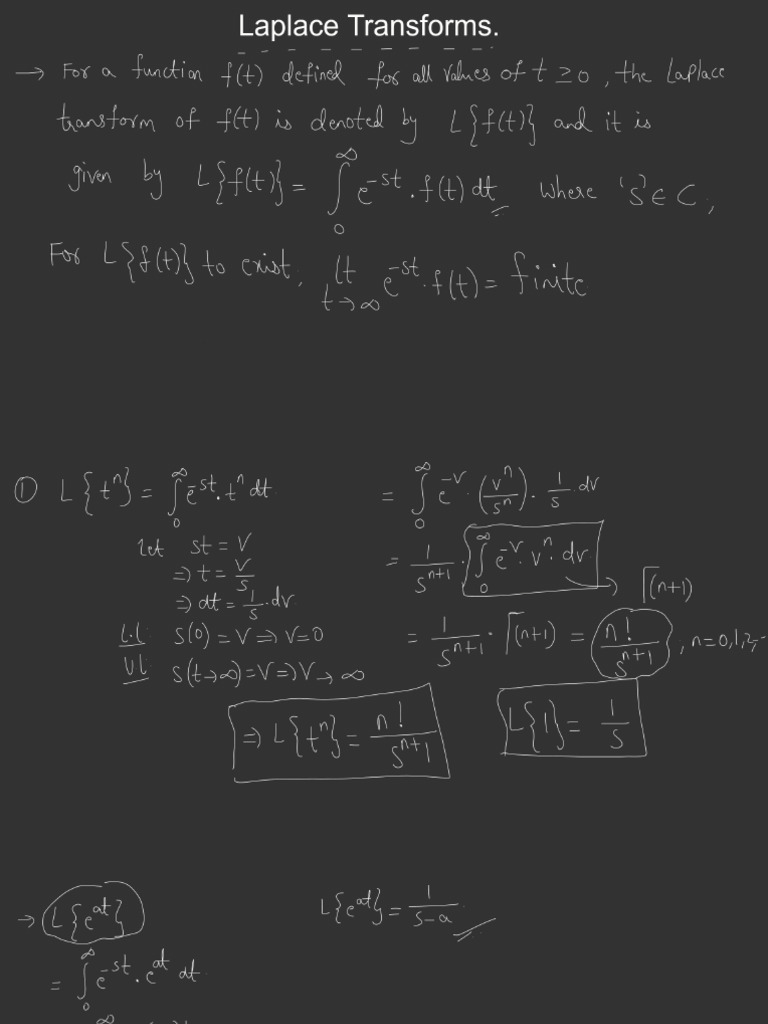 Laplace Transforms.
→ For a function f(t) defined for all values of t ≥ 0, the Laplace
transform of f(t) is denoted by L{f(t)} and it is
given by L{f(t)} = ∫₀^∞ e^-st . f(t) dt where 'S' ∈ C,
For L{f(t)} to exist, lt t→∞ e^-st . f(t) = finite
① L{t^n} = ∫₀^∞ e^-st . t^n dt
let st = V
⇒ t = V/S
⇒ dt = 1/S . dv
L.L S(0) = V ⇒ V = 0
UL S(t→∞) = V ⇒ V → ∞
= ∫₀^∞ e^-v . (v^n/s^n) . 1/s dv
= 1/s^n+1 . ∫₀^∞ e^-v . v^n . dv → Γ(n+1)
= 1/s^n+1 . Γ(n+1) = n!/s^n+1 , n=0,1,2,-
⇒ L{t^n} = n!/s^n+1
L{1} = 1/s
→ L{e^at}
= ∫₀^∞ e^-st . e^at dt
L{e^at} = 1/s-a